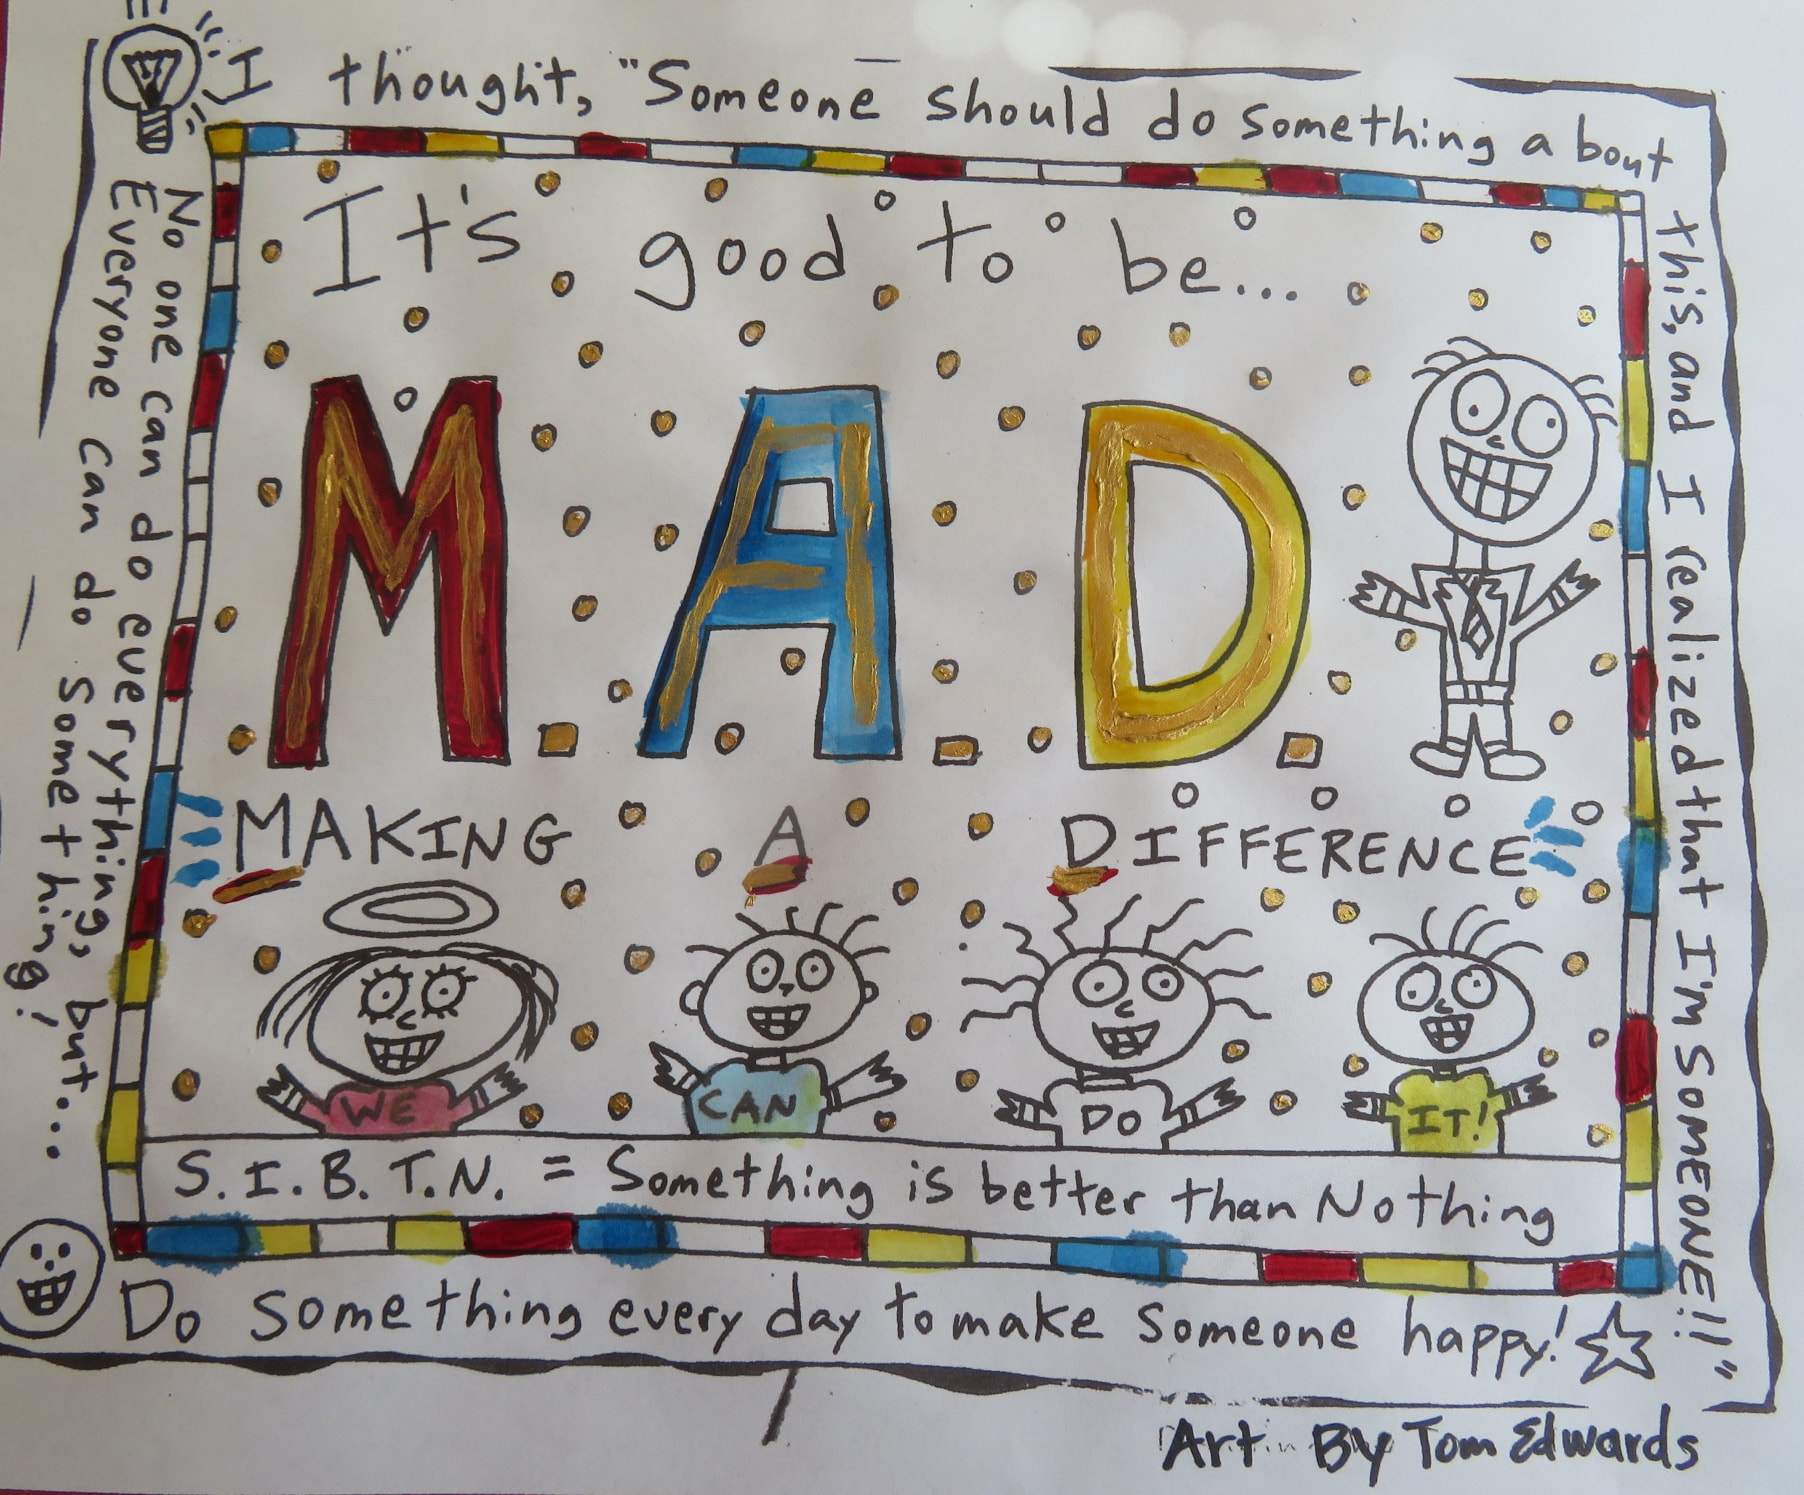 I thought, "Someone should do something about
this, and I realized that I'm SOMEONE!!!"
No one can do everything, but...
Everyone can do something!
It's good to be...
M.A.D.
MAKING A DIFFERENCE
WE CAN DO IT!
S.I.B.T.N. = Something is better than Nothing
Do something every day to make someone happy!
Art By Tom Edwards